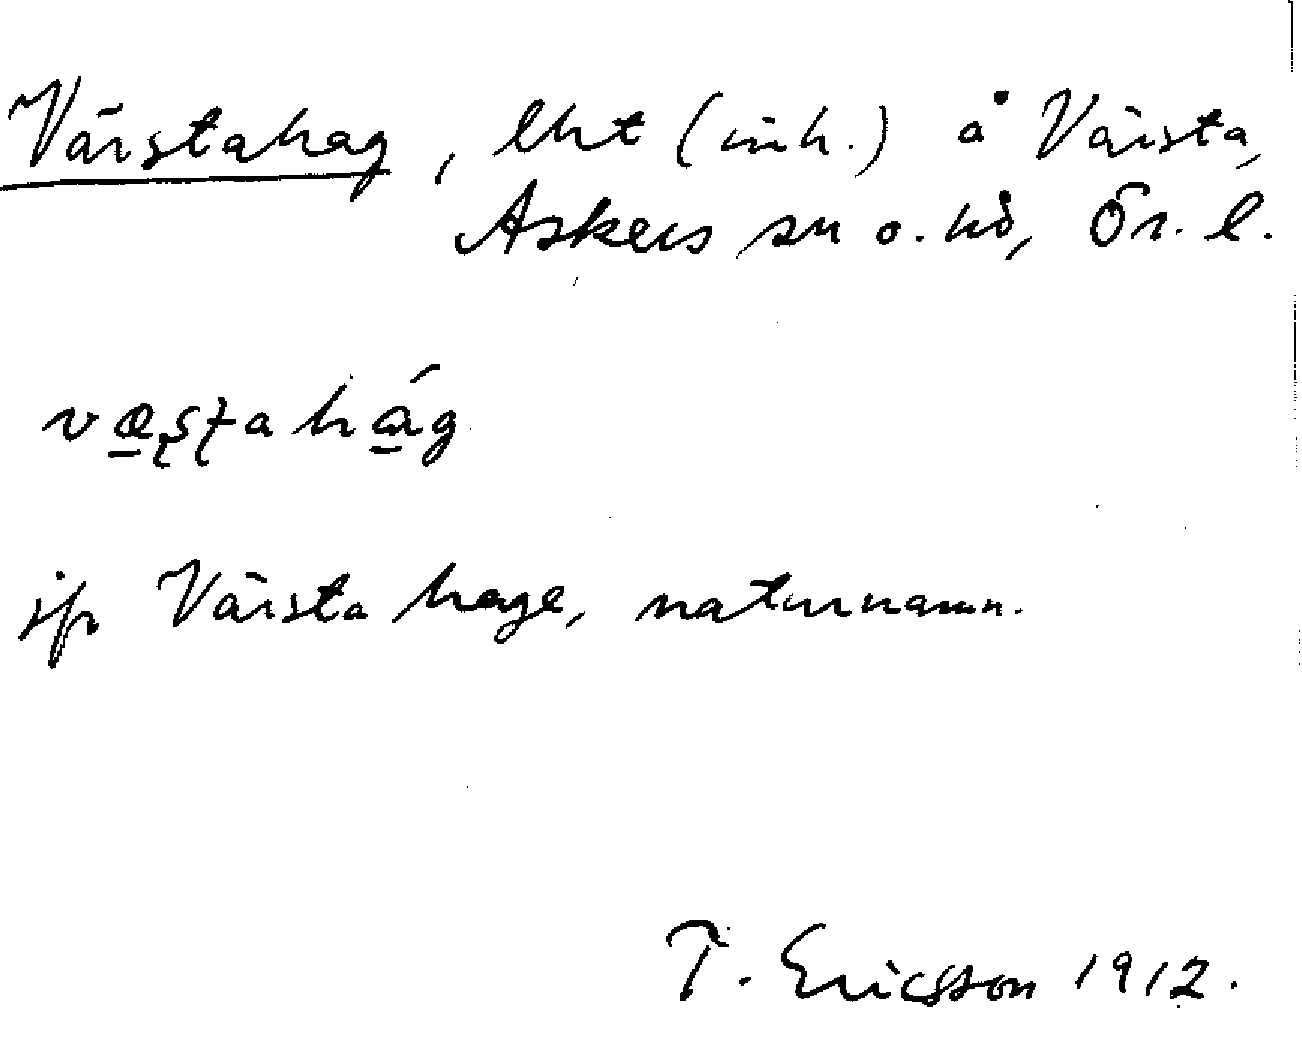 Värstahag, lht (inh.) å Värsta,
Askers sn o. hd, Ör. l.
væṣṭahág
jfr Värsta hage, naturnamn.
T. Ericsson 1912.